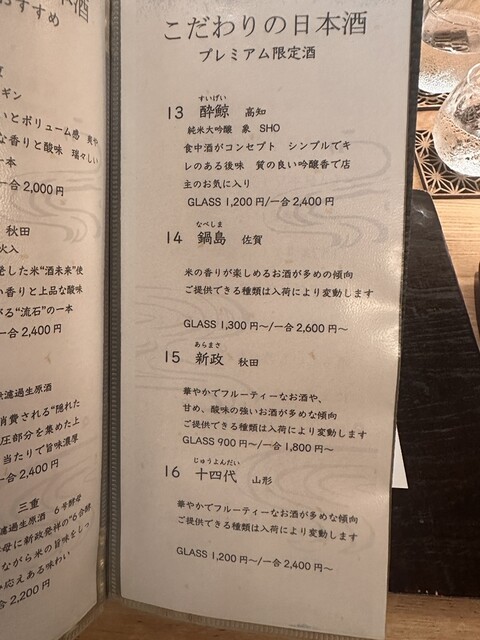 おすすめ
ギン
いとボリューム感
な香りと酸味 瑞々しい
一本
一合 2,000円
秋田
火入
した米“酒未来”使
い香りと上品な酸味
がる“流石”の一本
合 2,400円
濾過生原酒
消費される“隠れた
圧部分を集めた上
当たりで旨味濃厚
一合 2,400円
三重
濾過生原酒 6号酵母
母に新政発祥の“6号酵
ながら米の旨味をしっ
応えある味わい
合 2,200円
こだわりの日本酒
プレミアム限定酒
すいげい
13 酔鯨 高知
純米大吟醸 象 SHO
食中酒がコンセプト シンプルでキ
レのある後味 質の良い吟醸香で店
主のお気に入り
GLASS 1,200円/一合 2,400円
なべしま
14 鍋島 佐賀
米の香りが楽しめるお酒が多めの傾向
ご提供できる種類は入荷により変動します
GLASS 1,300円~/一合 2,600円~
あらまさ
15 新政 秋田
華やかでフルーティーなお酒や、
甘め、酸味の強いお酒が多な傾向
ご提供できる種類は入荷により変動します
GLASS 900円~/一合 1,800円~
じゅうよんだい
16 十四代 山形
華やかでフルーティーなお酒が多めな傾向
ご提供できる種類は入荷により変動します
GLASS 1,200円~/一合 2,400円~